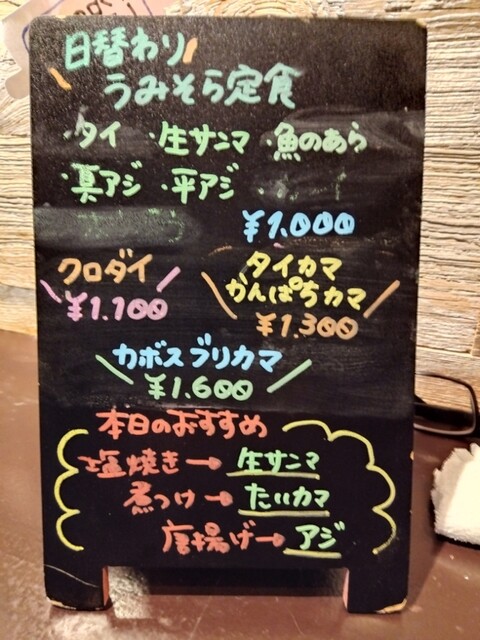 日替わり
うみそら定食
・タイ ・生サンマ ・魚のあら
・真アジ ・平アジ
¥1.000
クロダイ
¥1.100
タイカマ
かんぱちカマ
¥1.300
カボスブリカマ
¥1.600
本日のおすすめ
塩焼き→生サンマ
煮つけ→たいカマ
唐揚げ→アジ